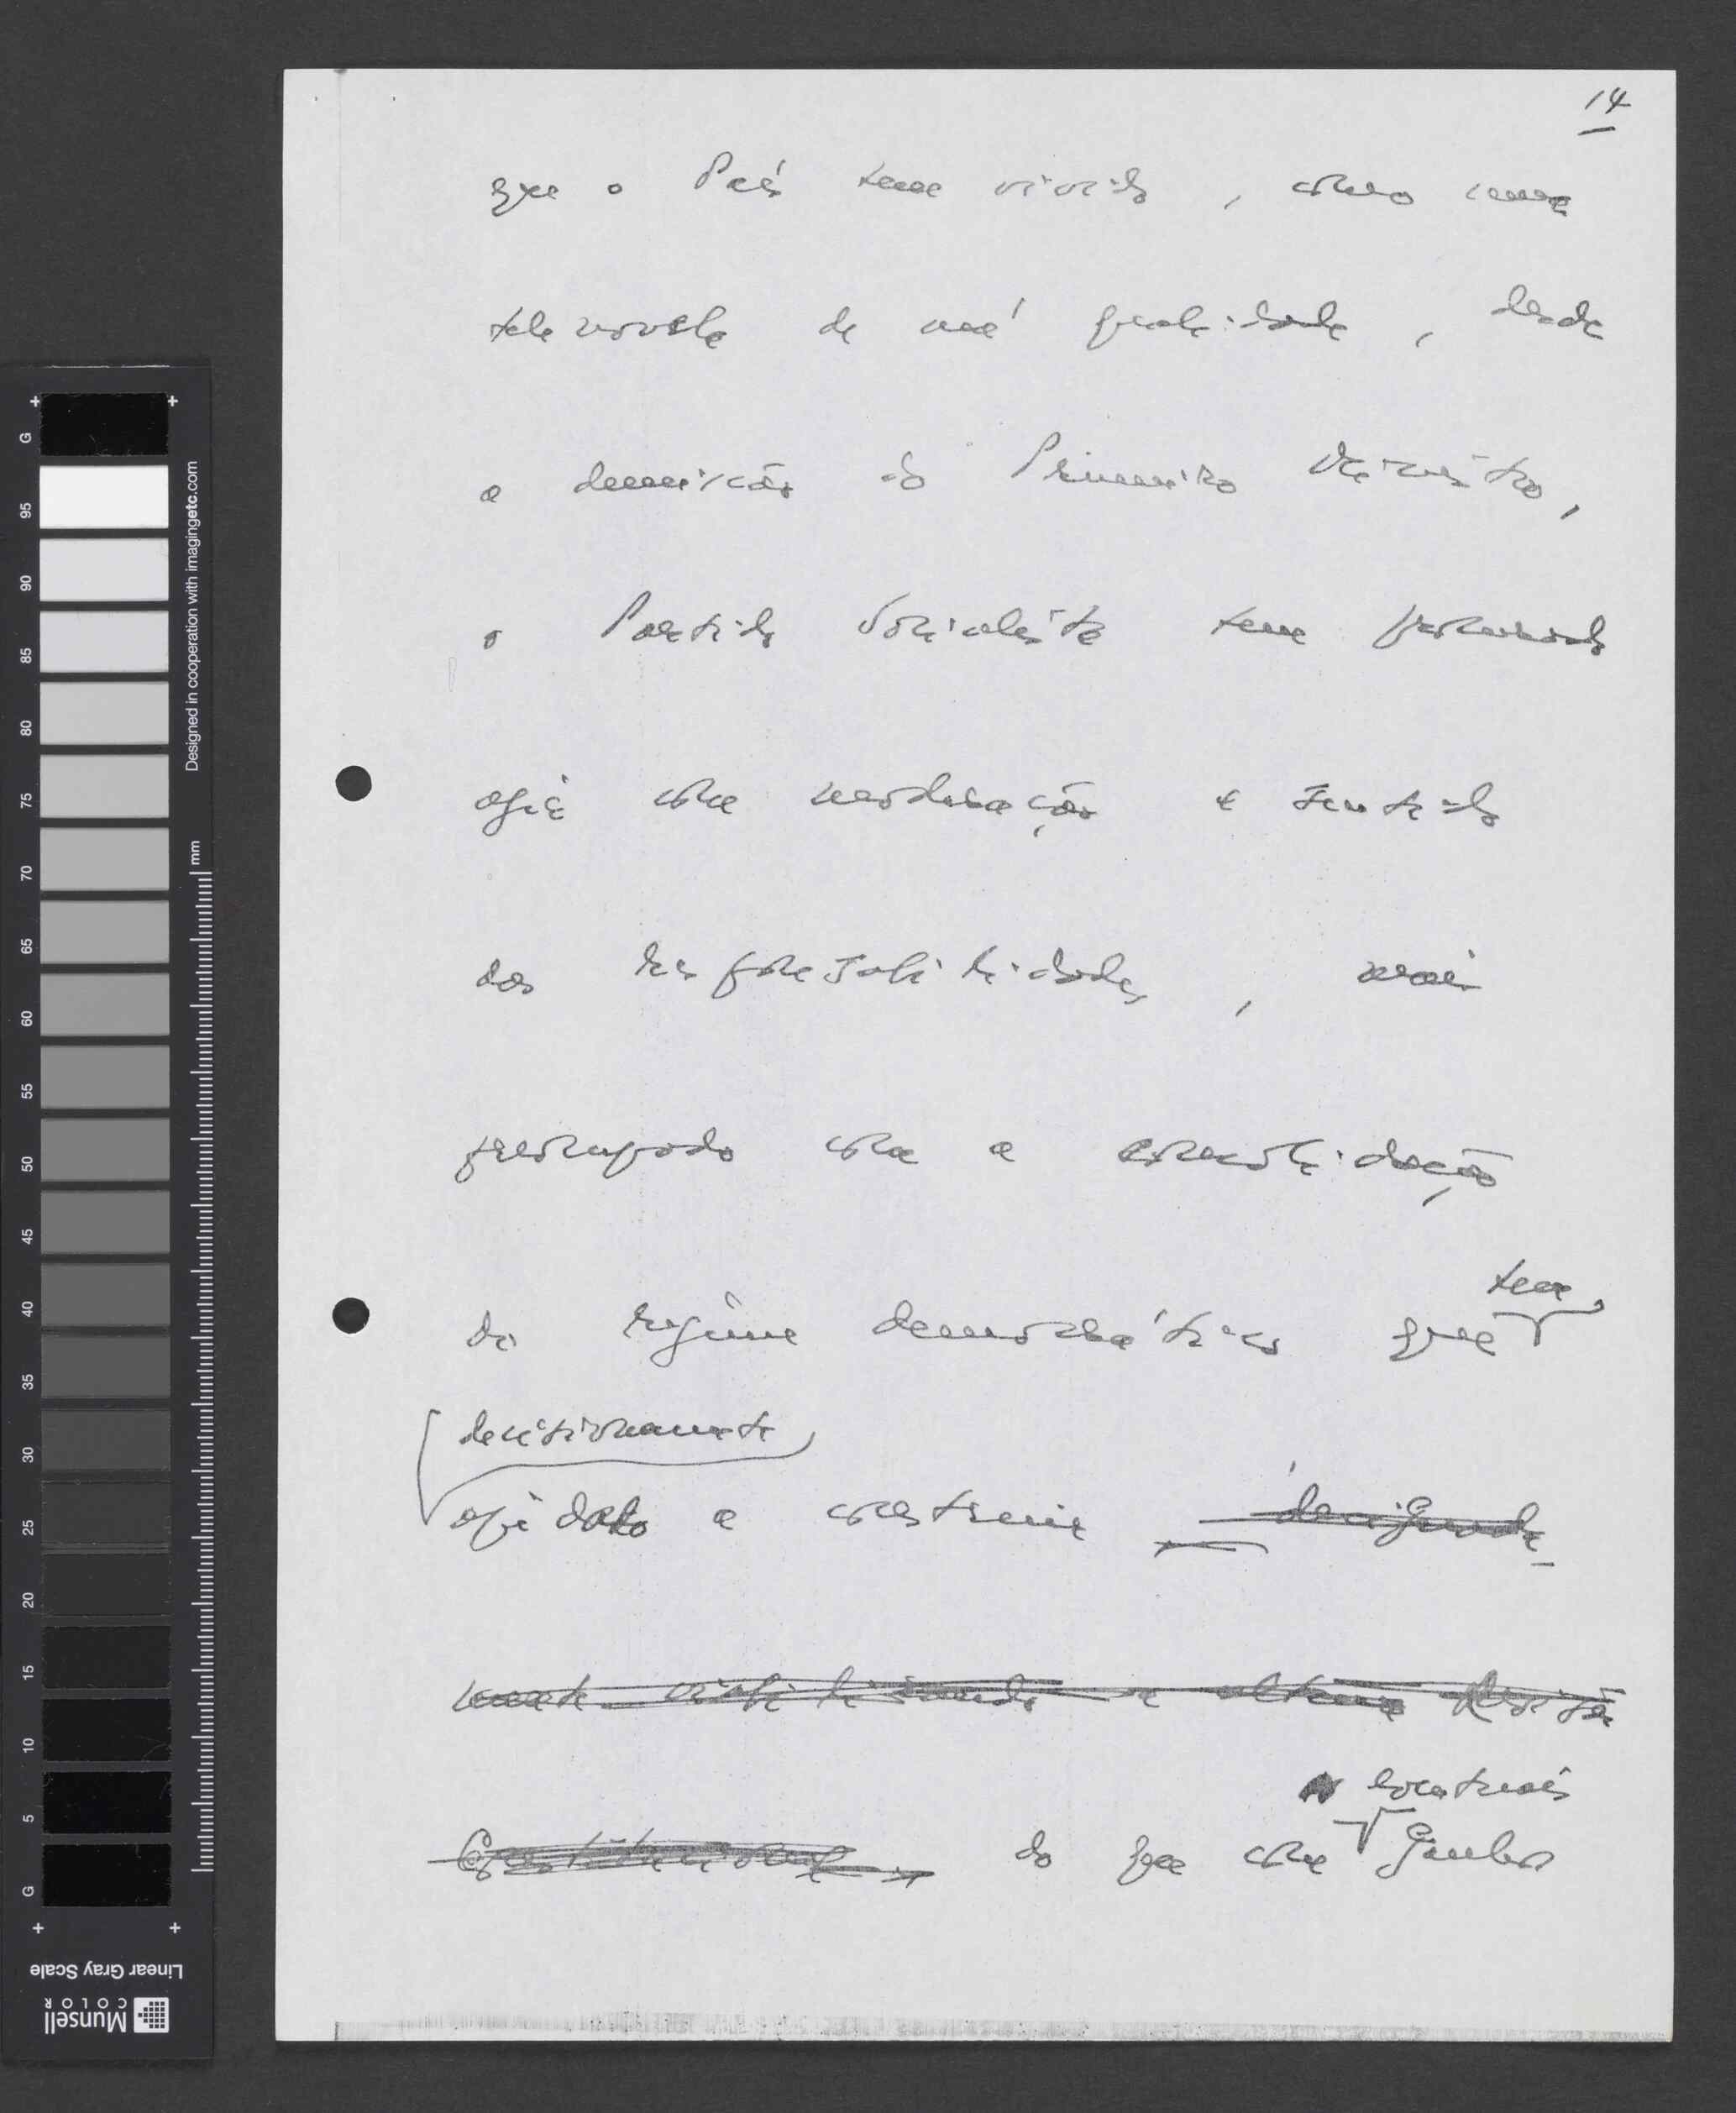 14
que o País tem vivido, como uma
telenovela de má qualidade, desde
a demissão do Primeiro Ministro,
o Partido Socialista tem procurado
agir com moderação e sentido
das responsabilidades, mais
preocupado com a consolidação
do regime democrático que tem
decisivamente
ajudado a construir designada-
mente viabilizando a última Revisão
Constitucional do que com
eventuais
ganhos
G 95 90 85 80 75 70 65 60 55 50 45 40 35 30 25 20 15 10 5 G
Designed in cooperation with imagingetc.com
mm
Linear Gray Scale
Munsell
COLOR